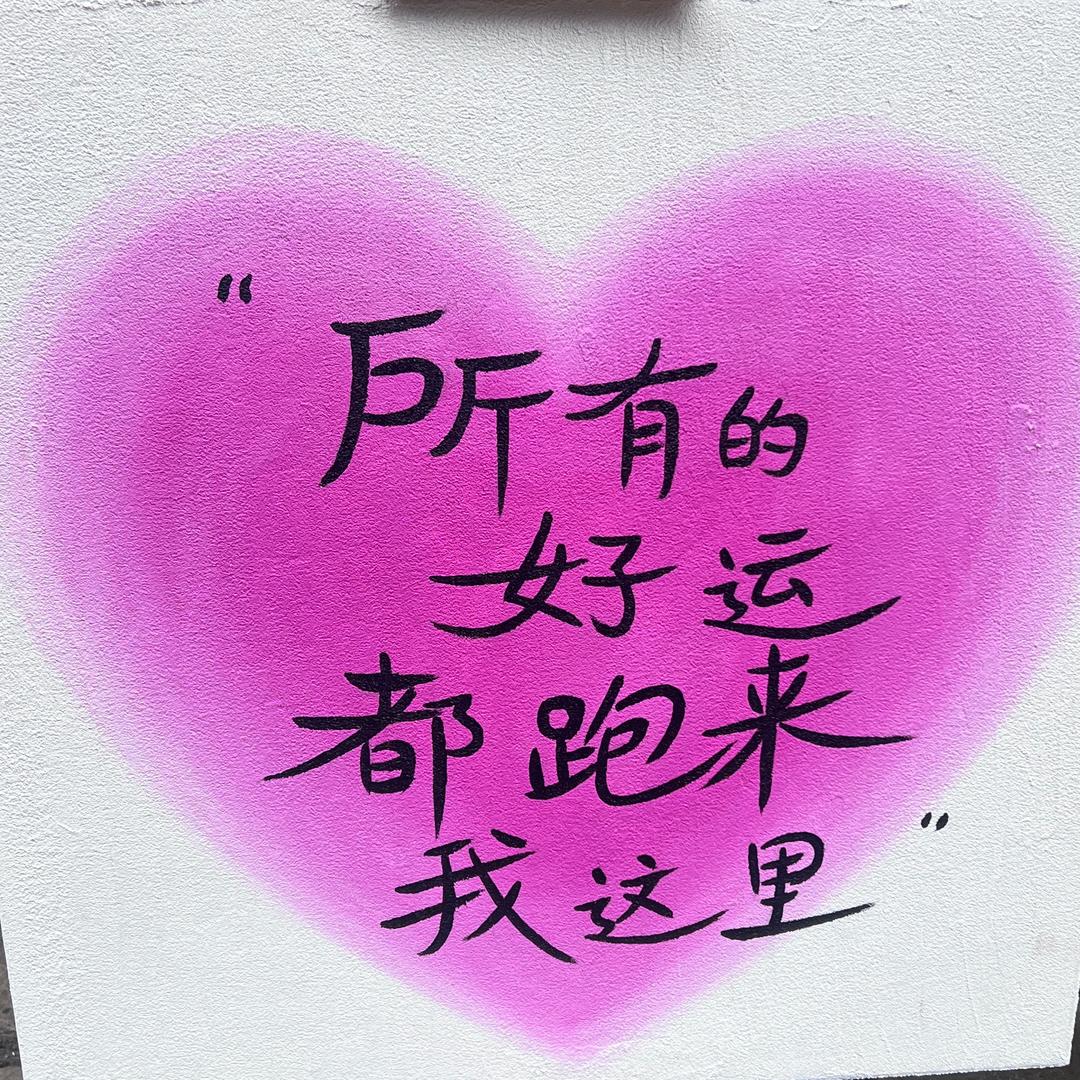 "所有的
好运
都跑来
我这里"